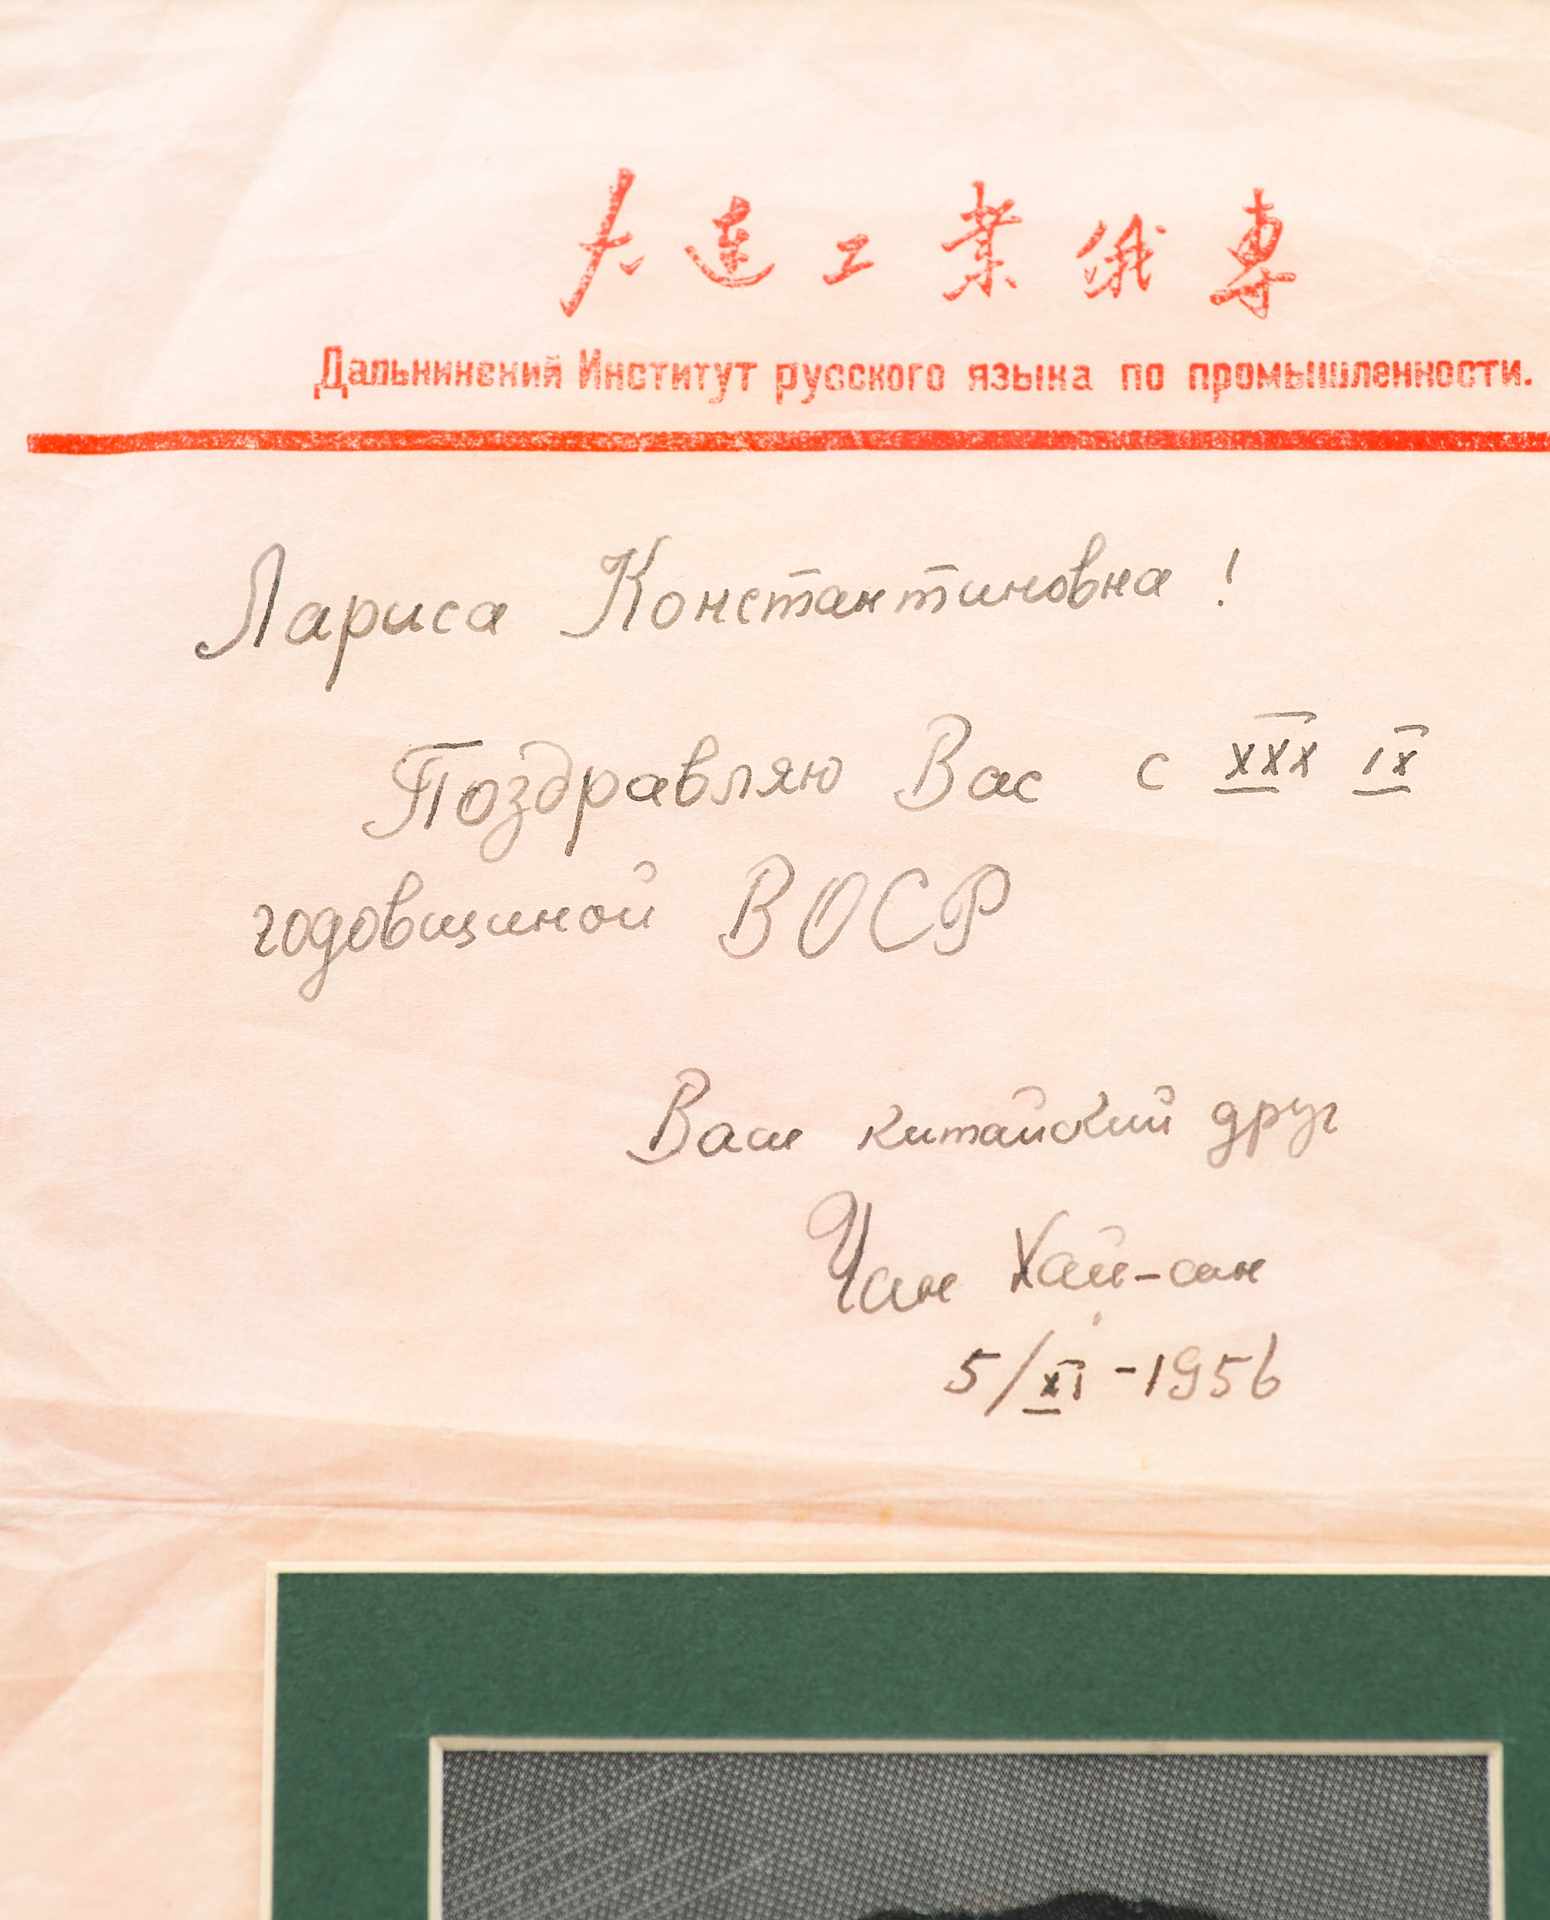 大連工業俄專
Дальнинский Институт русского языка по промышленности.
Лариса Константиновна!
Поздравляю Вас с XXX IX
годовщиной ВОСР
Ваш китайский друг
Чан Хай-сан
5/XI-1956